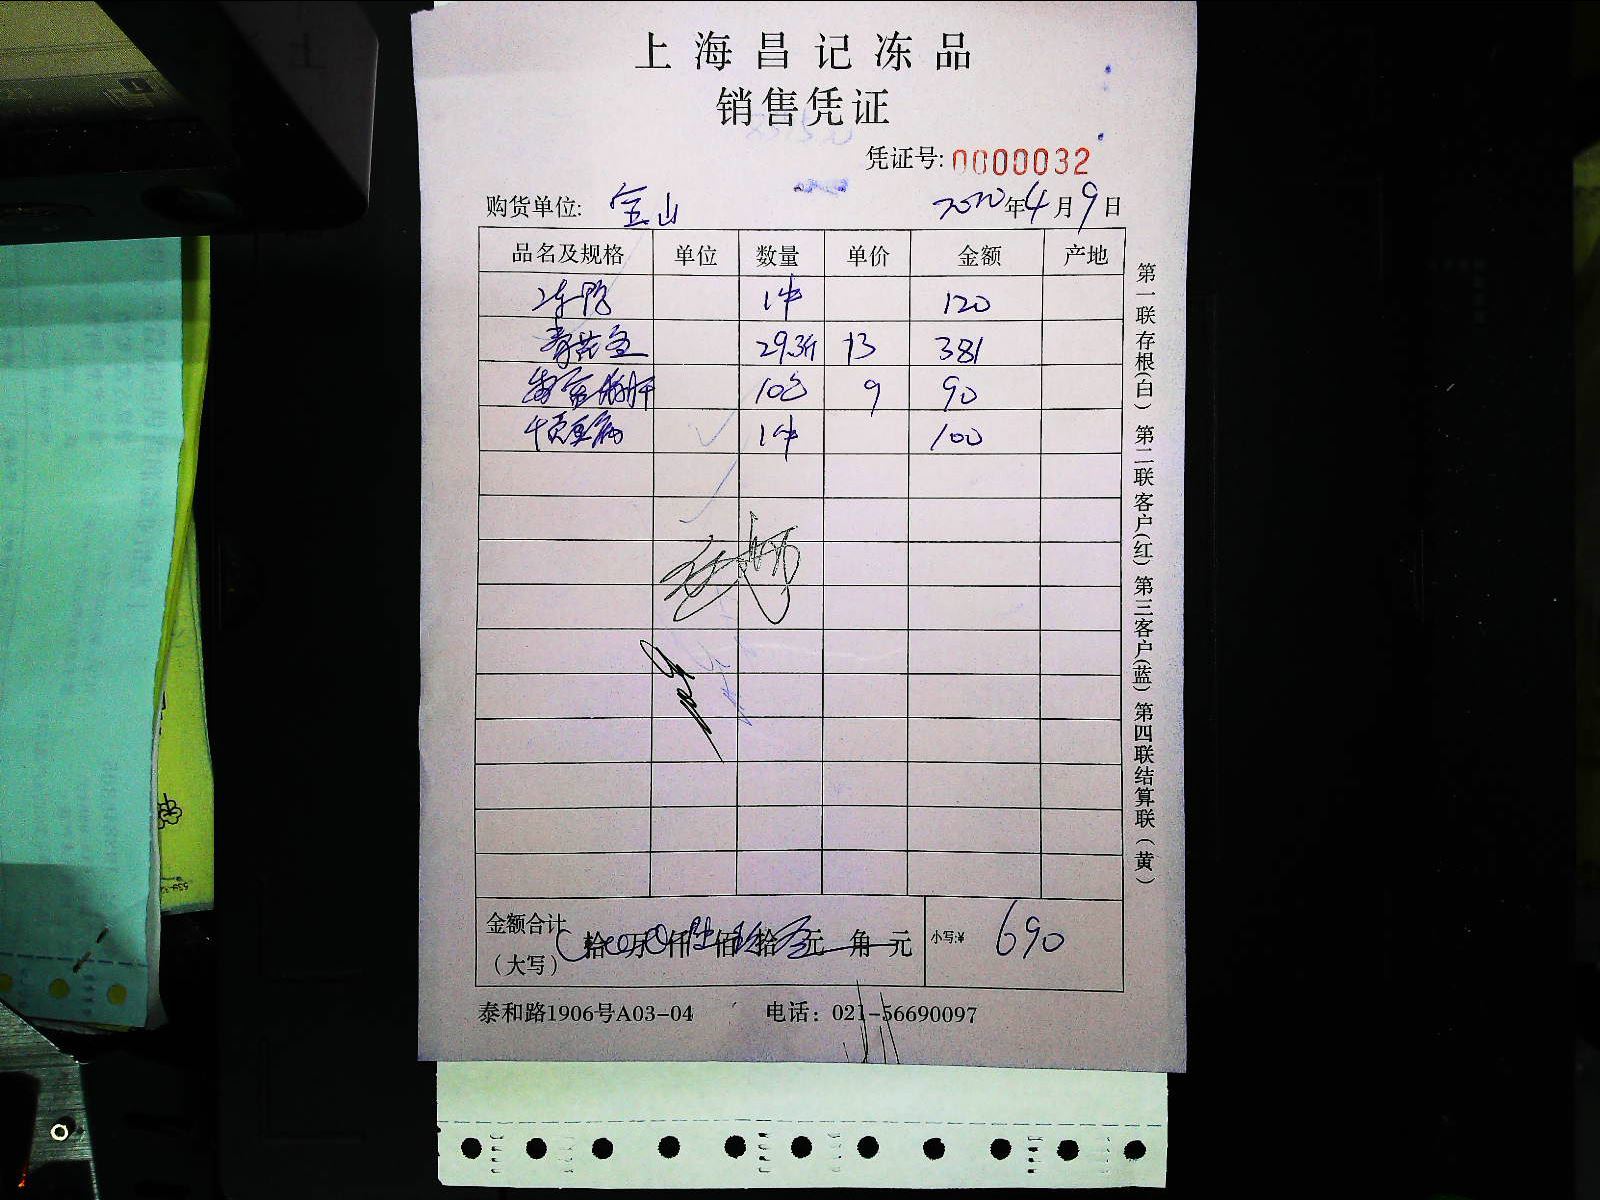 上海昌记冻品
销售凭证
凭证号: 0000032
购货单位: 宝山 2020年4月9日
品名及规格 单位 数量 单价 金额 产地
冻鸭 1件 120
29.3斤 13 381
10包 9 90
1件 100
金额合计 拾 万 仟 佰 拾 元 角 元 小写:¥ 690
(大写)
泰和路1906号A03-04 电话：021-56690097
第一联存根(白) 第二联客户(红) 第三客户(蓝) 第四联结算联(黄)